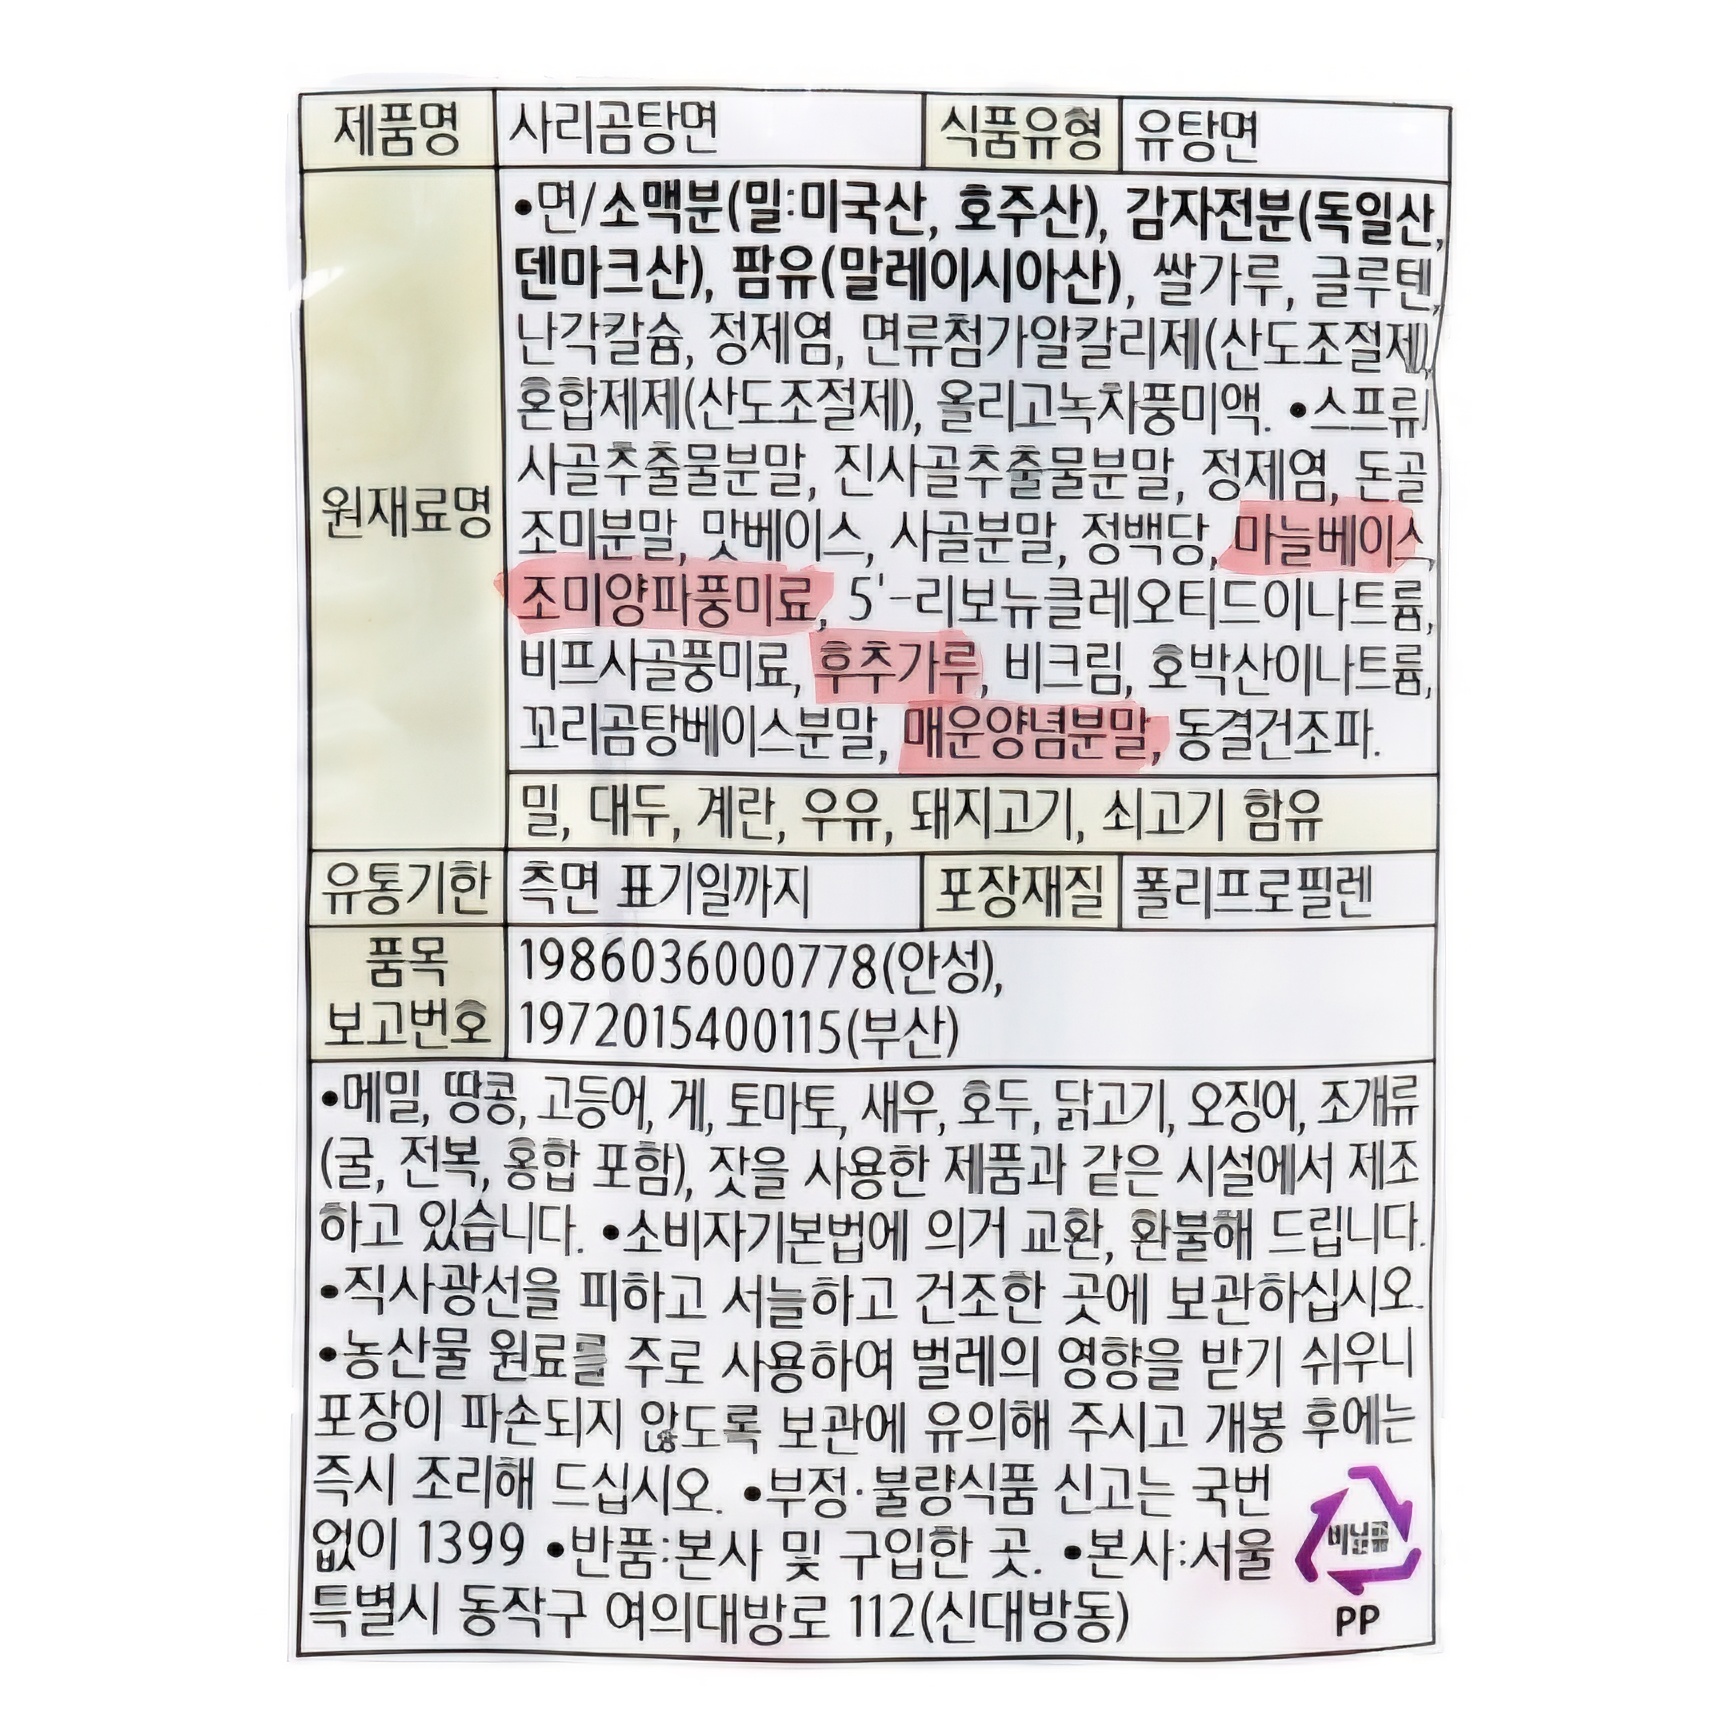 제품명 사리곰탕면 식품유형 유탕면
원재료명
•면/소맥분(밀:미국산, 호주산), 감자전분(독일산,
덴마크산), 팜유(말레이시아산), 쌀가루, 글루텐,
난각칼슘, 정제염, 면류첨가알칼리제(산도조절제),
혼합제제(산도조절제), 올리고녹차풍미액. •스프류/
사골추출물분말, 진사골추출물분말, 정제염, 돈골
조미분말, 맛베이스, 사골분말, 정백당, 마늘베이스,
조미양파풍미료, 5'-리보뉴클레오티드이나트륨,
비프사골풍미료, 후추가루, 비크림, 호박산이나트륨,
꼬리곰탕베이스분말, 매운양념분말, 동결건조파.
밀, 대두, 계란, 우유, 돼지고기, 쇠고기 함유
유통기한 측면 표기일까지 포장재질 폴리프로필렌
품목
보고번호
1986036000778(안성),
1972015400115(부산)
•메밀, 땅콩, 고등어, 게, 토마토, 새우, 호두, 닭고기, 오징어, 조개류
(굴, 전복, 홍합 포함), 잣을 사용한 제품과 같은 시설에서 제조
하고 있습니다. •소비자기본법에 의거 교환, 환불해 드립니다.
•직사광선을 피하고 서늘하고 건조한 곳에 보관하십시오.
•농산물 원료를 주로 사용하여 벌레의 영향을 받기 쉬우니
포장이 파손되지 않도록 보관에 유의해 주시고 개봉 후에는
즉시 조리해 드십시오. •부정·불량식품 신고는 국번
없이 1399 •반품:본사 및 구입한 곳. •본사:서울
특별시 동작구 여의대방로 112(신대방동)
비닐류
PP